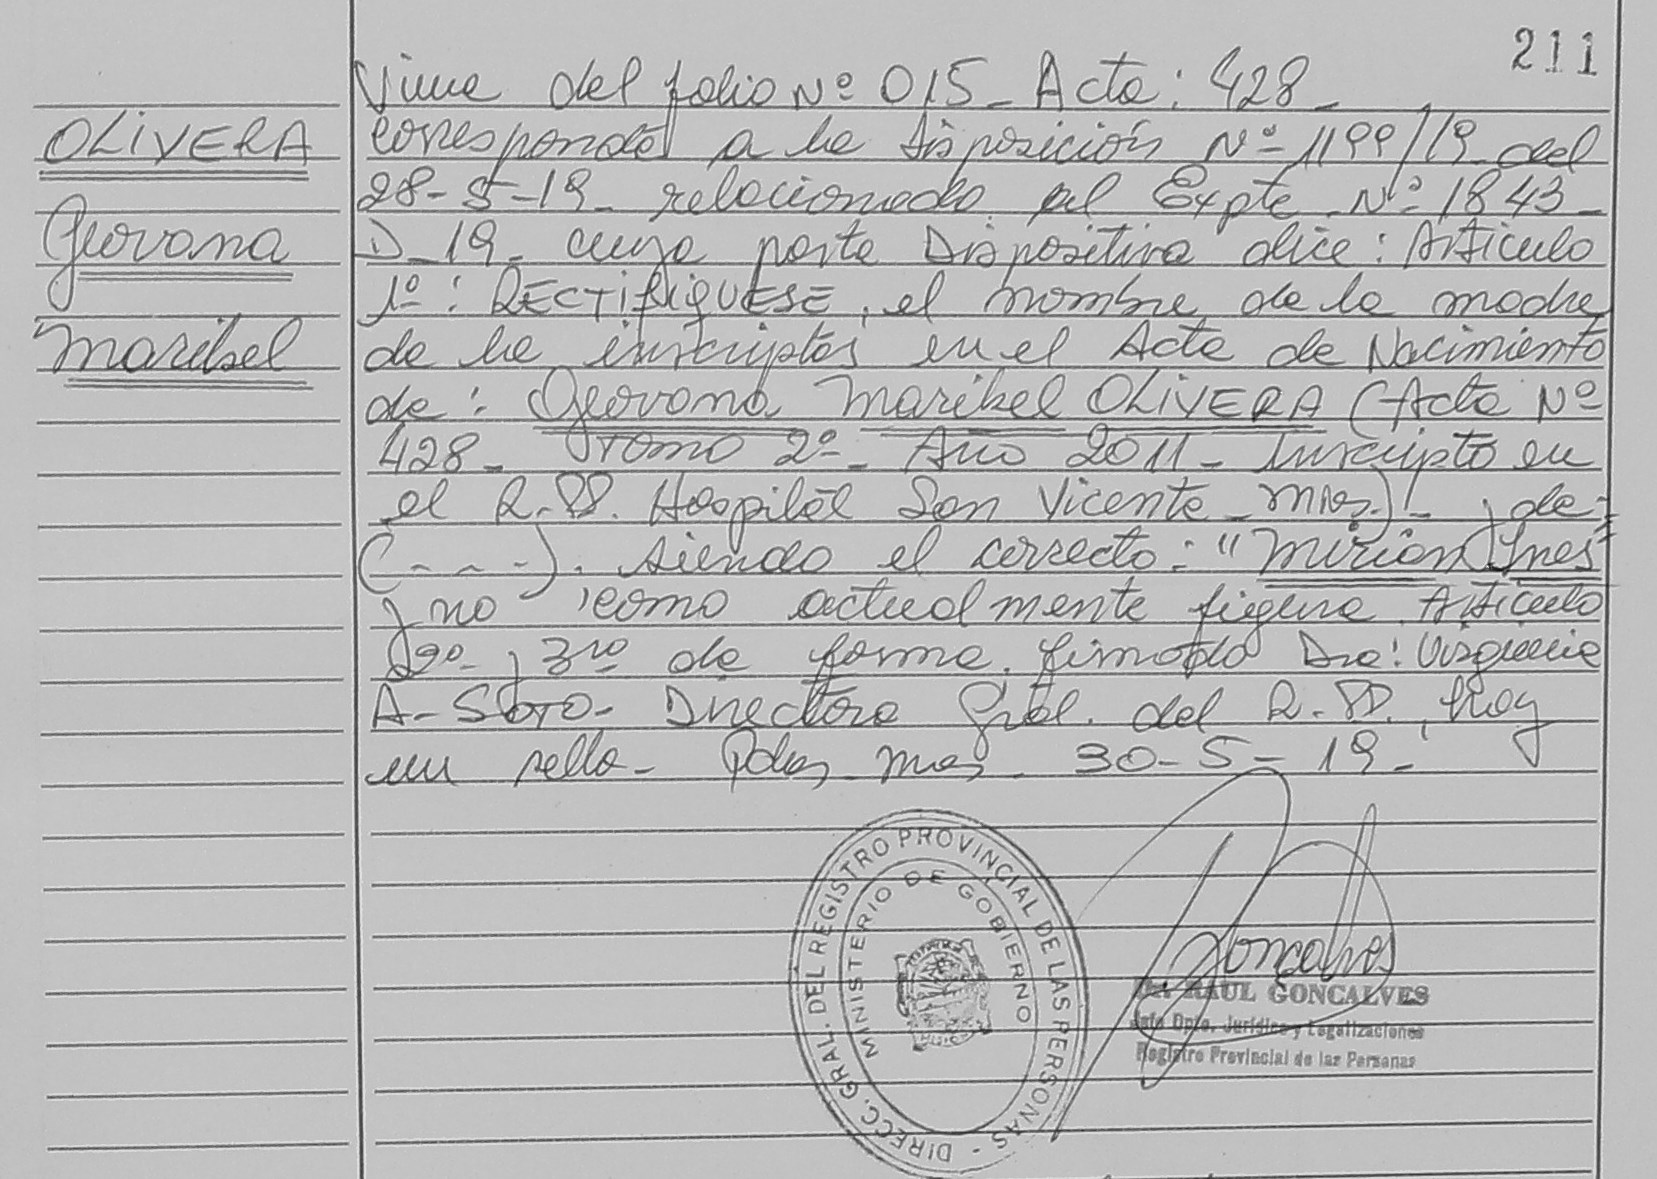 211
OLIVERA
Geovana
Maribel
Viene del folio Nº 015 - Acta: 428 -
corresponde a la Disposición Nº 1199/19 del
28-5-19 - relacionado al Expte Nº 1843 -
D - 19 - cuya parte Dispositiva dice: Artículo
1º: RECTIFIQUESE, el nombre de la madre
de la inscripta, en el Acta de Nacimiento
de: Geovana Maribel OLIVERA (Acta Nº
428 - Tomo 2º - Año 2011 - Inscripto en
el R. PP. Hospital San Vicente - Mnes.) - y de
(- - - -). siendo el correcto: "Mirian Ines"
y no como actualmente figura. Artículo
2º y 3ro de forma. firmado Dra: Virginia
A - SOTO - Directora Gral. del R. PP. Hay
un sello - Pdas Mnes 30 - 5 - 19 -
DIRECC. GRAL. DEL REGISTRO PROVINCIAL DE LAS PERSONAS -
MINISTERIO DE GOBIERNO
Goncalves
RAUL GONCALVES
Jefe Dpto. Jurídico y Legalizaciones
Registro Provincial de las Personas